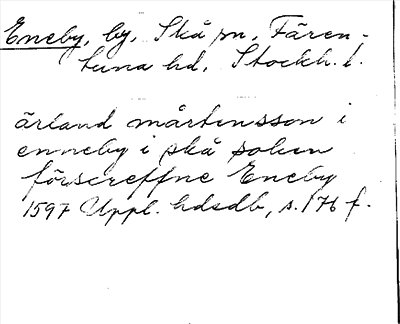 Eneby, by, Skå sn, Fären-
tuna hd, Stockh. l.
ärland mårtensson i
enneby i skå soken
förscreffne Eneby
1597 Uppl. hdsdb, s. 176 f.